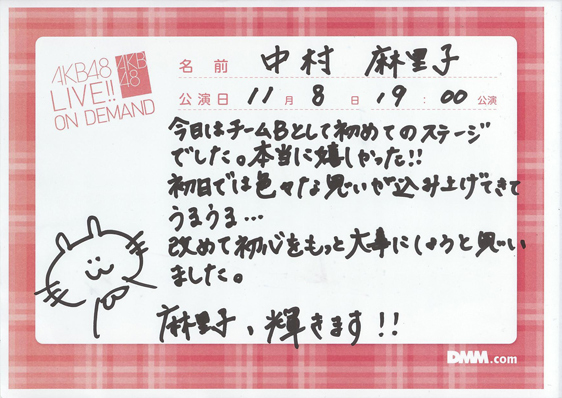 AKB48
LIVE!!
ON DEMAND
AKB
48
名前 中村 麻里子
公演日 11月8日 19:00公演
今日はチームBとして初めてのステージ
でした。本当に嬉しかった!!
初日では色々な思いが込み上げてきて
うまうま…
改めて初心をもっと大事にしようと思い
ました。
麻里子、輝きます!!
DMM.com